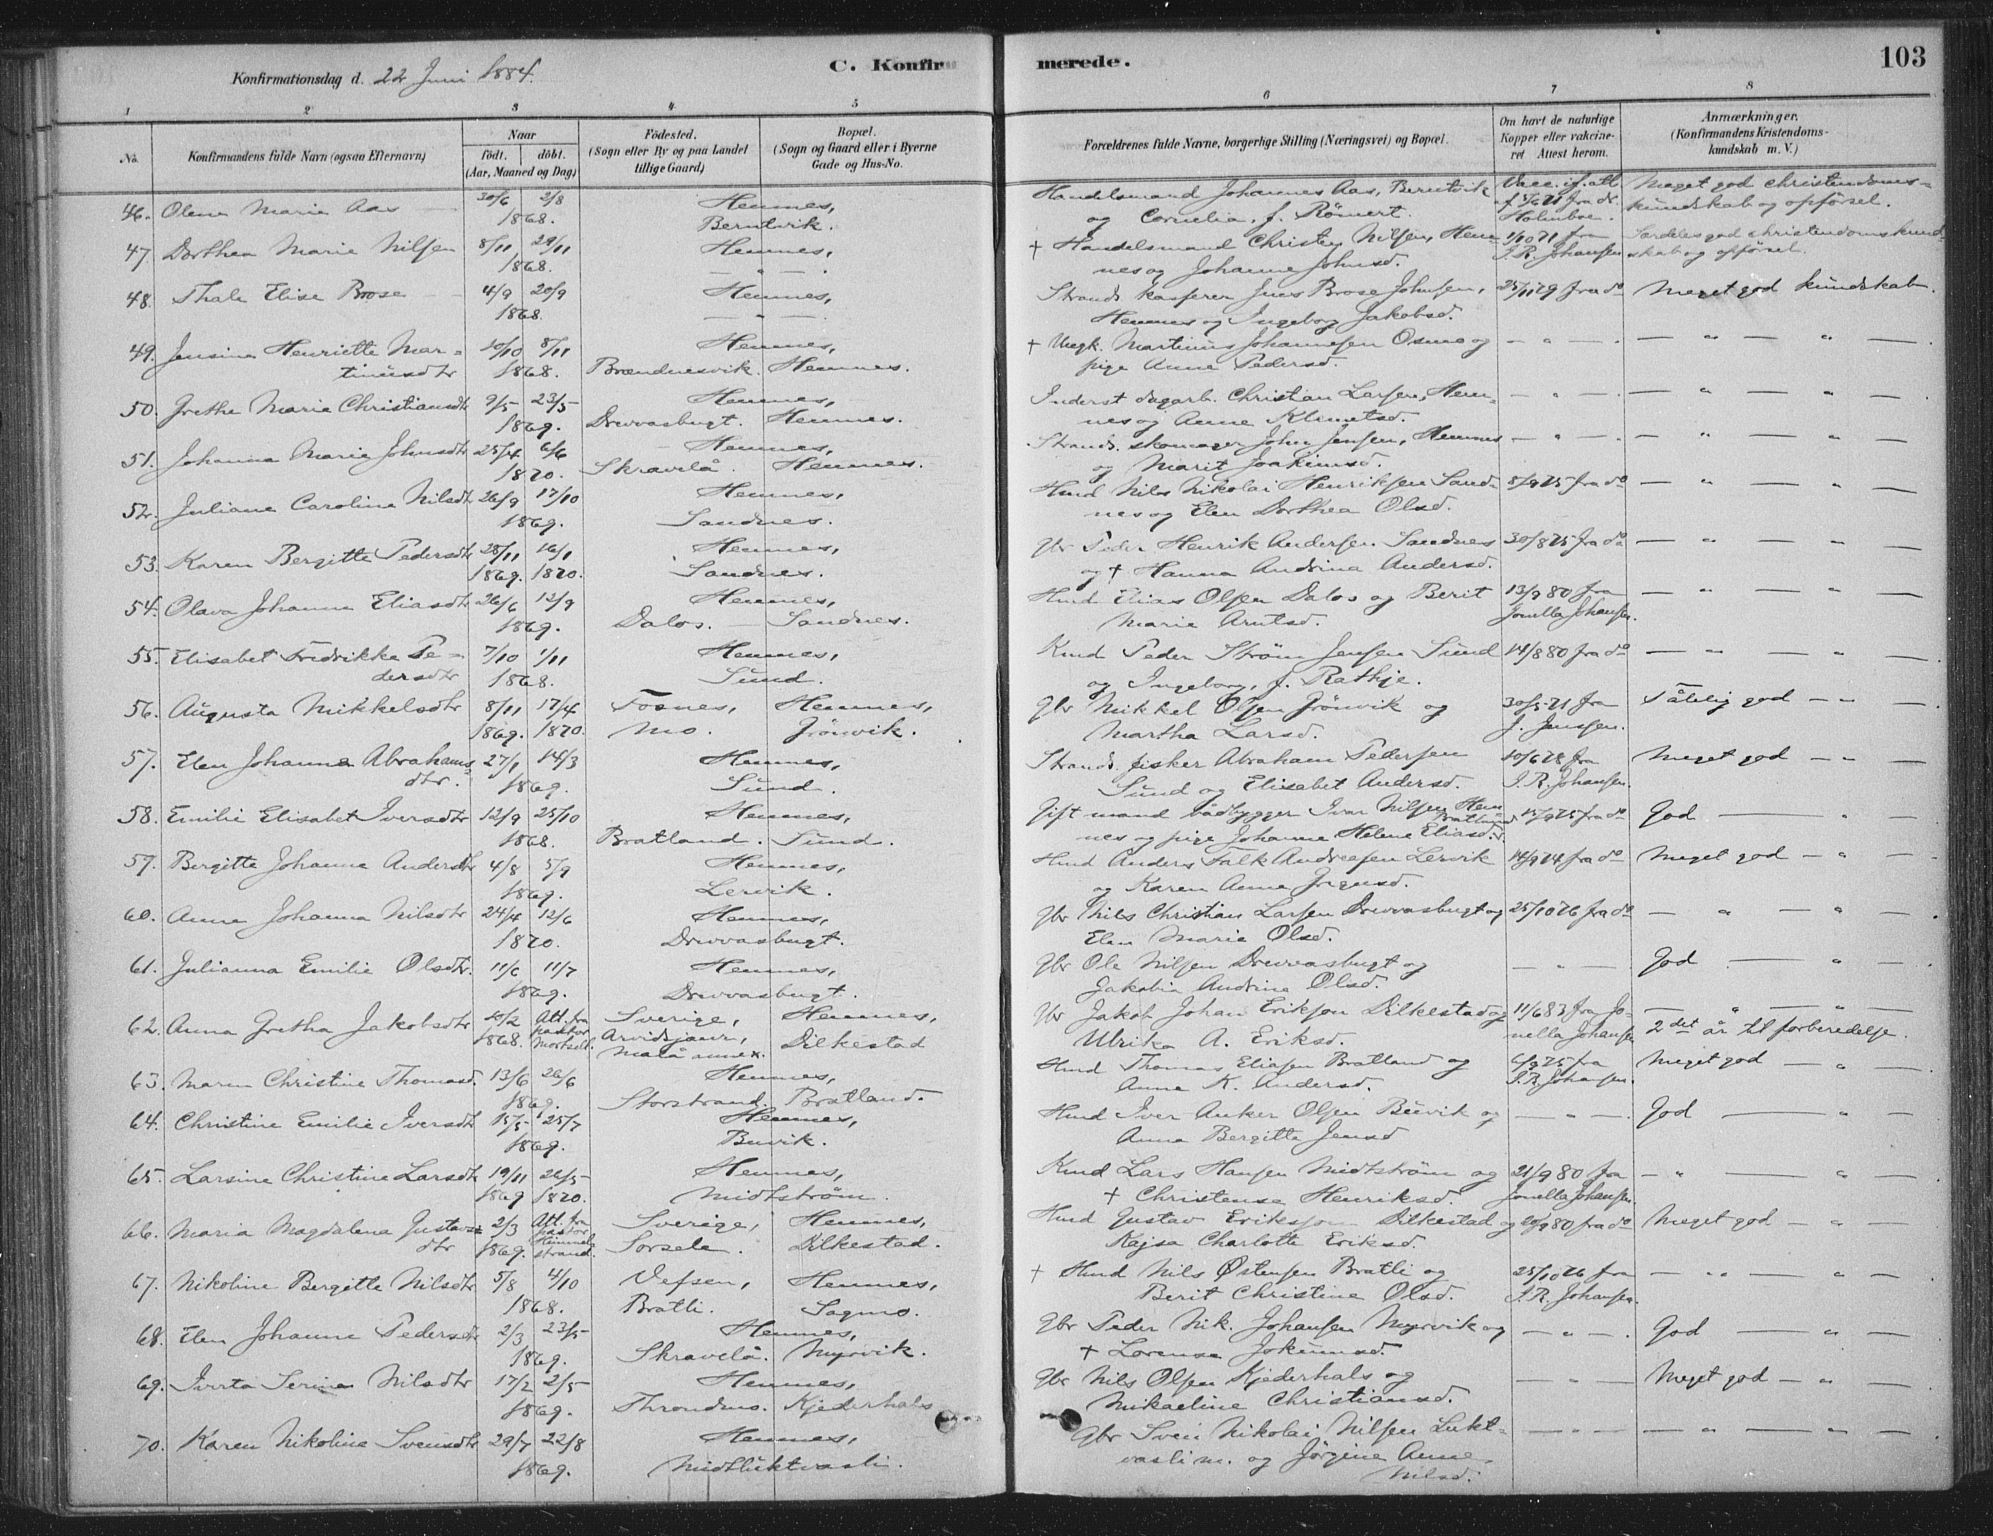 Konfirmationsdag d. 22 Juni 1884.
C. Konfirmerede.
103
1 2 3 4 5 6 7 8
No.
Konfirmandens fulde Navn (ogsaa Efternavn)
Naar
født. døbt.
(Aar, Maaned og Dag)
Fødested.
(Sogn eller By og paa Landet
tillige Gaard)
Bopæl.
(Sogn og Gaard eller i Byerne
Gade og Hus-No.
Forældrenes fulde Navne, borgerlige Stilling (Næringsvei) og Bopæl.
Om havt de naturlige
Kopper eller vakcine-
ret Attest herom.
Anmærkninger.
(Konfirmandens Kristendoms-
kundskab m. V.)
46. Olena Marie Aas 30/6 2/8 Hemnes, Handelsmand Johannes Aas, Berntvik Vacc. if. att. Meget god christendoms-
1868. Berntvik. og Cornelia, f. Römert. Holmboe. kundskab og opførsel.
47 Dorthea Marie Nilsen 8/11 29/11 Hemnes, † Handelsmand Christen Nilsen, Hem- 1/10 71 fra Særdeles god christendomskund-
1868. — " — nes og Johanne Johnsd. I. R. Johansen skab og opførsel.
48. Thale Elise Brose 4/9 20/9 Hemnes, Strands. kasserer Jens Brose Johnsen, 25/11 79 fra do Meget god kundskab.
1868. — " — Hemnes og Ingeborg Jakobsd.
49. Jensine Henriette Mar- 10/10 8/11 Hemnes, † Ungk. Martinus Johannesen Osmo og — " — — " — " —
tinusdtr 1868. Brændnesvik. Hemnes. pige Anne Pedersd.
50. Grethe Marie Christiansdtr 9/5 23/5 Hemnes, Inderst dagarb. Christian Larsen, Hem- — " — — " — " —
1869. Drevvasbugt. Hemnes. nes og Anne Klemetsd.
51. Johanna Marie Johnsdtr 25/4 6/6 Hemnes, Strands. skomager John Jensen, Hemnes — " — — " — " —
1870. Skravelå. Hemnes. og Marit Joakimsd.
52. Juliane Caroline Nilsdtr 26/9 17/10 Hemnes, Hmd Nils Nikolai Henriksen Sand- 5/9 75 fra do — " — " —
1869. Sandnes. nes og Elen Dorthea Olsd.
53. Karen Bergitte Pedersdtr 28/11 16/1 Hemnes, Gbr Peder Henrik Andersen Sandnes 30/8 75 fra do — " — " —
1869. 1870. Sandnes. og † Hanna Andrina Andersd.
54. Olava Johanna Eliasdtr 26/6 12/9 Hemnes, Hmd Elias Olsen Dalos og Berit 13/9 80 fra — " — " —
1869. Dalos. — Sandnes. Marie Arntsd. Jonella Johansen.
55. Elisabet Fredrikke Pe- 7/10 1/11 Hemnes, Kmd Peder Strøm Jensen Sund 14/8 80 fra do — " — " —
dersdtr 1868. Sund. og Ingeborg, f. Rathje.
56. Augusta Mikkelsdtr 8/11 17/4 Fosnes, Hemnes, Gbr Mikkel Olsen Grönvik og 30/5 71 fra Tålelig god — " —
1869. 1870. Mo. Grönvik. Martha Larsd. J. Jenssen.
57. Elen Johanna Abrahams- 27/1 14/3 Hemnes, Strands. fisker Abraham Pedersen 10/6 78 fra Meget god — " —
dtr. 1869. Sund. Sund og Elisabet Andersd. I. R. Johansen.
58. Emilie Elisabet Iversdtr 12/9 25/10 Hemnes, Gift mand bådbygger Ivar Nilsen Hem- 15/9 75 fra do God — " —
1868. Bratland. Sund. nes og pige Johanne Helene Eliasd.
59. Bergitte Johanne Andersdtr 4/8 5/9 Hemnes, Hmd Anders Falk Andreasen Lervik 14/9 74 fra do Meget god — " —
1869. Lervik. og Karen Anna Jørgensd.
60. Anna Johanna Nilsdtr 24/4 12/6 Hemnes, Gbr Nils Christian Larsen Drevvasbugt og 25/10 76 fra do — " — " —
1870. Drevvasbugt. Elen Marie Olsd.
61. Julianna Emilie Olsdtr. 11/6 11/7 Hemnes, Gbr Ole Nilsen Drevvasbugt og — " — God — " —
1869. Drevvasbugt. Jakobia Andrine Olsd.
62. Anna Gretha Jakobsdtr 20/2 Att. fra Sverige, Hemnes, Gbr Jakob Johan Erikson Dilkestad og 11/6 83 fra Jo- — " — " —
1868. pastor Arvidsjaur, Dilkestad Ulrika A. Eriksd. nella Johansen 2det år til forberedelse.
Malå annex.
63. Maren Christine Thomasd. 13/6 26/6 Hemnes, Hmd Thomas Eliasen Bratland og 6/9 75 fra Meget god — " —
1869. Storstrand. Bratland. Anne K. Andersd. I. R. Johansen.
64. Christine Emilie Iversdtr 15/5 25/7 Hemnes, Hmd Iver Anker Olsen Buvik og — " — God — " —
1869. Buvik. Anna Bergitte Jensd
65. Larsine Christine Larsdtr 19/11 26/5 Hemnes, Kmd Lars Hansen Midtstrøm og 21/9 80 fra — " — " —
1869 1870. Midtstrøm. † Christense Henriksd. Jonella Johansen.
66. Maria Magdalena Gustavs- 2/3 Att. fra Sverige, Hemnes, Hmd Gustav Eriksson Dilkestad og 20/9 80 fra do Meget god — " —
dtr 1869. pastor Sorsele. Dilkestad. Kajsa Charlotte Eriksd.
67. Nikoline Bergitte Nilsdtr 5/8 4/10 Vefsen, Hemnes, † Hmd Nils Østensen Bratli og 25/10 76 fra — " — " —
1868. Bratli. Sagmo. Berit Christine Olsd. I. R. Johansen.
68. Elen Johanne Pedersdtr 2/3 23/5 Hemnes, Gbr Peder Nik. Johansen Myrvik og — " — God — " —
1869. Skravelå. Myrvik. † Lorense Jokumsd.
69. Iverta Serine Nilsdtr 17/2 2/5 Hemnes, Gbr Nils Olsen Kjederhals og — " — Meget god — " —
1869. Throndnes. Kjederhals Mikaeline Christiansd.
70. Karen Nikoline Svensdtr 29/7 22/8 Hemnes, Gbr Sven Nikolai Nilsen Lukt- — " — — " — " —
1869. Midtluktvasli. vasli m. og Jørgine Anne
Nilsd.